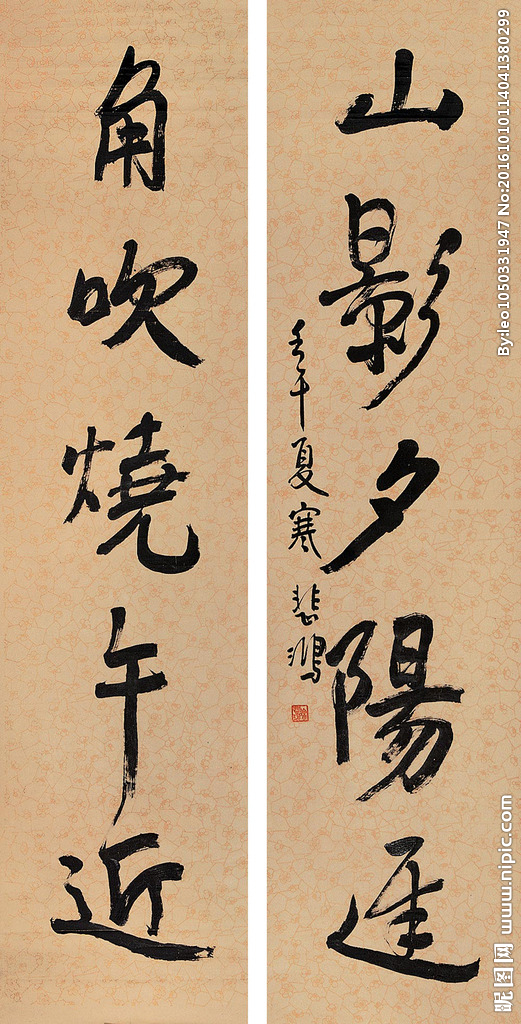 山影夕陽遲
壬午夏寒 悲鴻
角吹燒午近
By:leo1050331947 No:20161010114041380299
昵图网 www.nipic.com